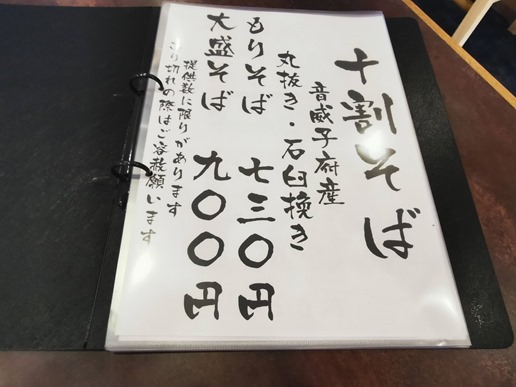 十割そば
音威子府産
丸抜き・石臼挽き
もりそば 七三〇円
大盛そば 九〇〇円
提供数に限りがあります
売り切れの際はご容赦願います